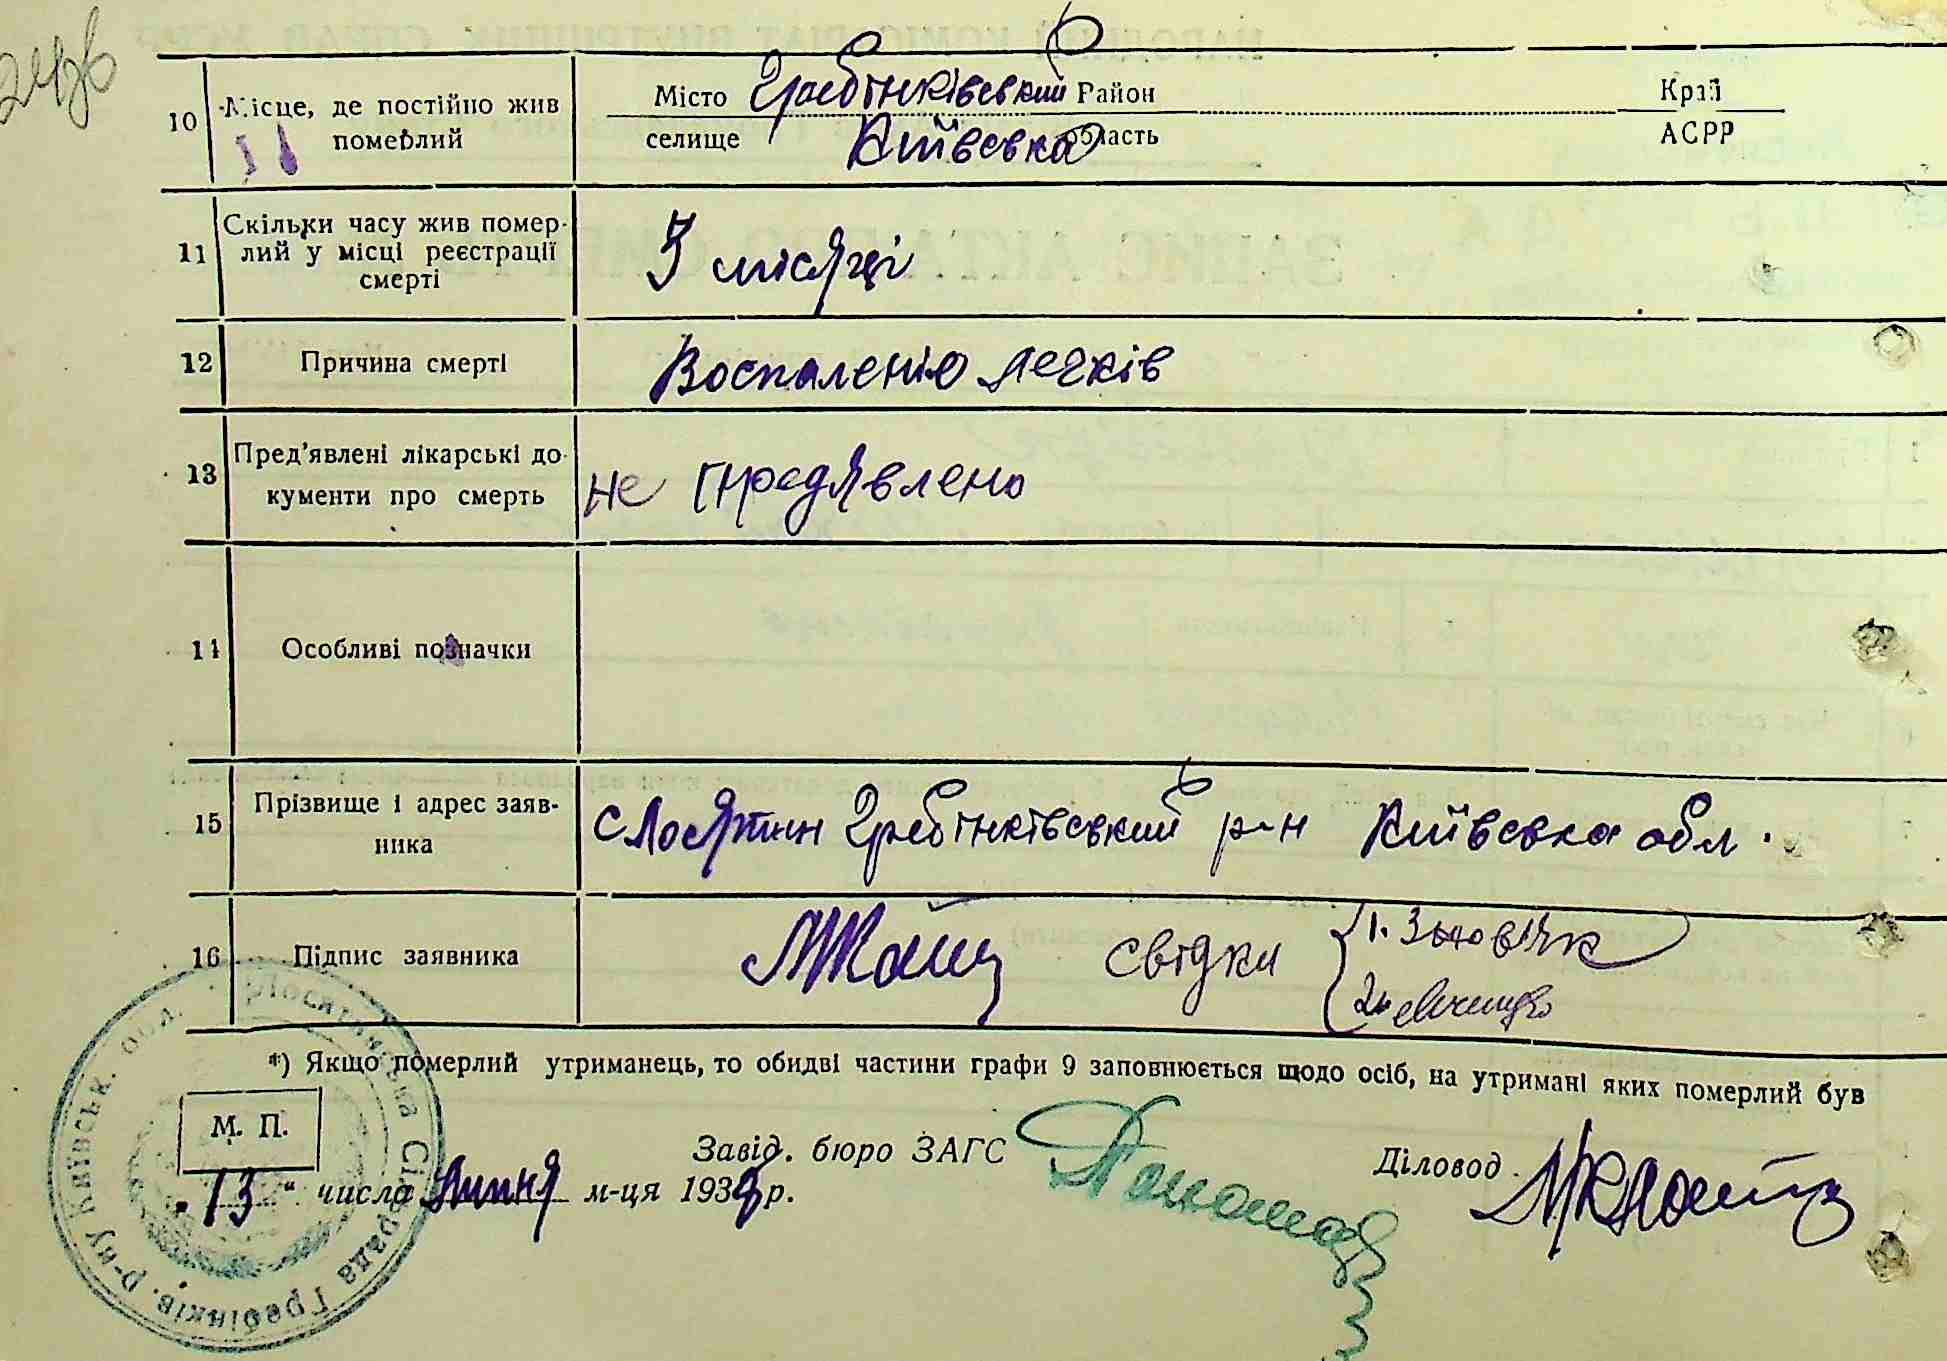 10 Місце, де постійно жив Місто Гребінківський Район Край
померлий селище Київська область АСРР
11 Скільки часу жив помер-
лий у місці реєстрації 3 місяці
смерті
12 Причина смерті Воспаленію легків
13 Пред'явлені лікарські до-
кументи про смерть не предявлено
14 Особливі позначки
15 Прізвище і адрес заяв- с Лосятин Гребінківський р-н Київська обл.
ника
16 Підпис заявника свідки 1.
2.
*) Якщо померлий утриманець, то обидві частини графи 9 заповнюється щодо осіб, на утримані яких померлий був
М. П.
Завід. бюро ЗАГС Діловод
"13" числа Липня м-ця 1939 р.
Лосятинська Сільрада Гребінків. р-ну Київськ. обл.